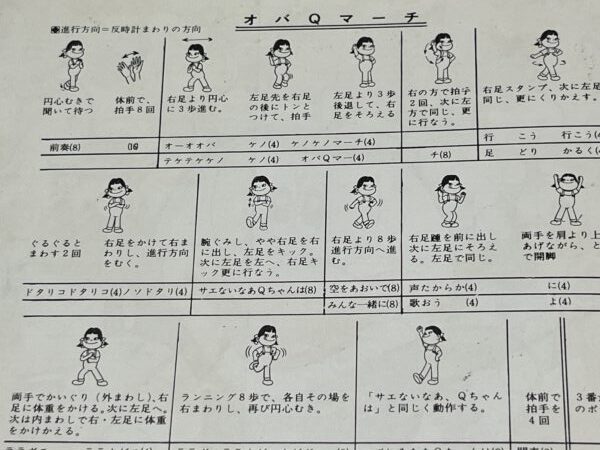 オバQマーチ
進行方向=反時計まわりの方向
円心むきで
聞いて待つ
体前で、
拍手8回
右足より円心
に3歩進む。
左足先を右足
の後にトンと
つけて、拍手
左足より3歩
後退して、右
足をそろえる
右の方で拍手
2回、次に左
方で同じ、更
に行なう。
右足スタンプ、次に左足
同じ、更にくりかえす。
前奏(8)
オーオオバ ケノ(4) ケノケノマーチ(4)
行 こう 行こう(4
テケテケケノ ケノ(4) オバQマー(4) チ(8)
足 どり かるく(4)
ぐるぐると
まわす2回
右足をかけて右ま
わりし、進行方向
をむく。
腕ぐみし、やや右足を右
に出し、左足をキック。
次に左足を左へ、右足キ
ック更に行なう。
右足より8歩
進行方向へ進
む。
右足踵を前に出し
次に左足にそろえ
る。左足で同じ。
両手を肩より上
あげながら、と
で開脚
ドタリコドタリコ(4)ノソドタリ(4)
サエないなあQちゃんは(8)
空をあおいで(8)
声たからか(4) に(4)
みんな一緒に(8)
歌おう (4) よ(4)
両手でかいぐり(外まわし)、右
足に体重をかける。次に左足へ。
次は内まわしで右・左足に体重
をかけかえる。
ランニング8歩で、各自その場を
右まわりし、再び円心むき。
「サエないなあ、Qちゃん
は」と同じく動作する。
体前で
拍手を
4回
3番
のポ